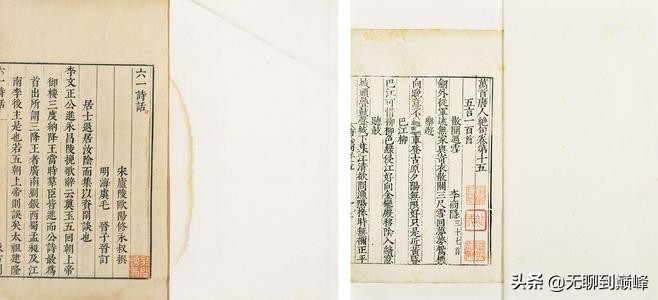 六一詩話
宋廬陵歐陽修永叔撰
明海虞毛 晉子晉訂
居士退居汝陰而集以資閒談也
李文正公進永昌陵挽歌辭云奠玉五回朝上帝
御樓三度納降王當時羣臣皆進而公詩最爲
首出所謂三降王者廣南劉鋹西蜀孟昶及江
南李後主是也若五朝上帝則誤矣太祖建隆
六一詩話
萬首唐人絕句卷第十五
五言一百首
散關遇雪 李商隱三十七首
劍外從軍遠無家與寄衣散關三尺雪回夢舊鴛機
樂遊
向晚意不適驅車登古原夕陽無限好只是近黃昏
巴江柳
巴江可惜柳柳色綠侵江好向金鑾殿移陰入綺窗
聽鼓
城頭疊鼓聲城下暮江清欲問漁陽摻時無禰正平
头条 @无聊到巅峰